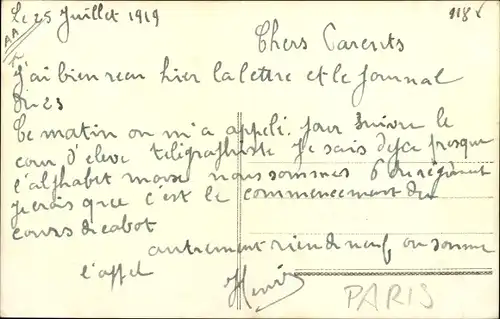 Le 25 Juillet 1919
118
AA
Chers Parents
J'ai bien recu hier la lettre et le Journal
du 23
Ce matin on m'a appelé pour suivre le
cour d'eleve telegraphiste Je sais deja presque
l'alphabet morse nous sommes 6 au regiment
Je crois que c'est le commencement du
cours de cabot
autrement rien de neuf, on sonne
l'appel
Henri
PARIS